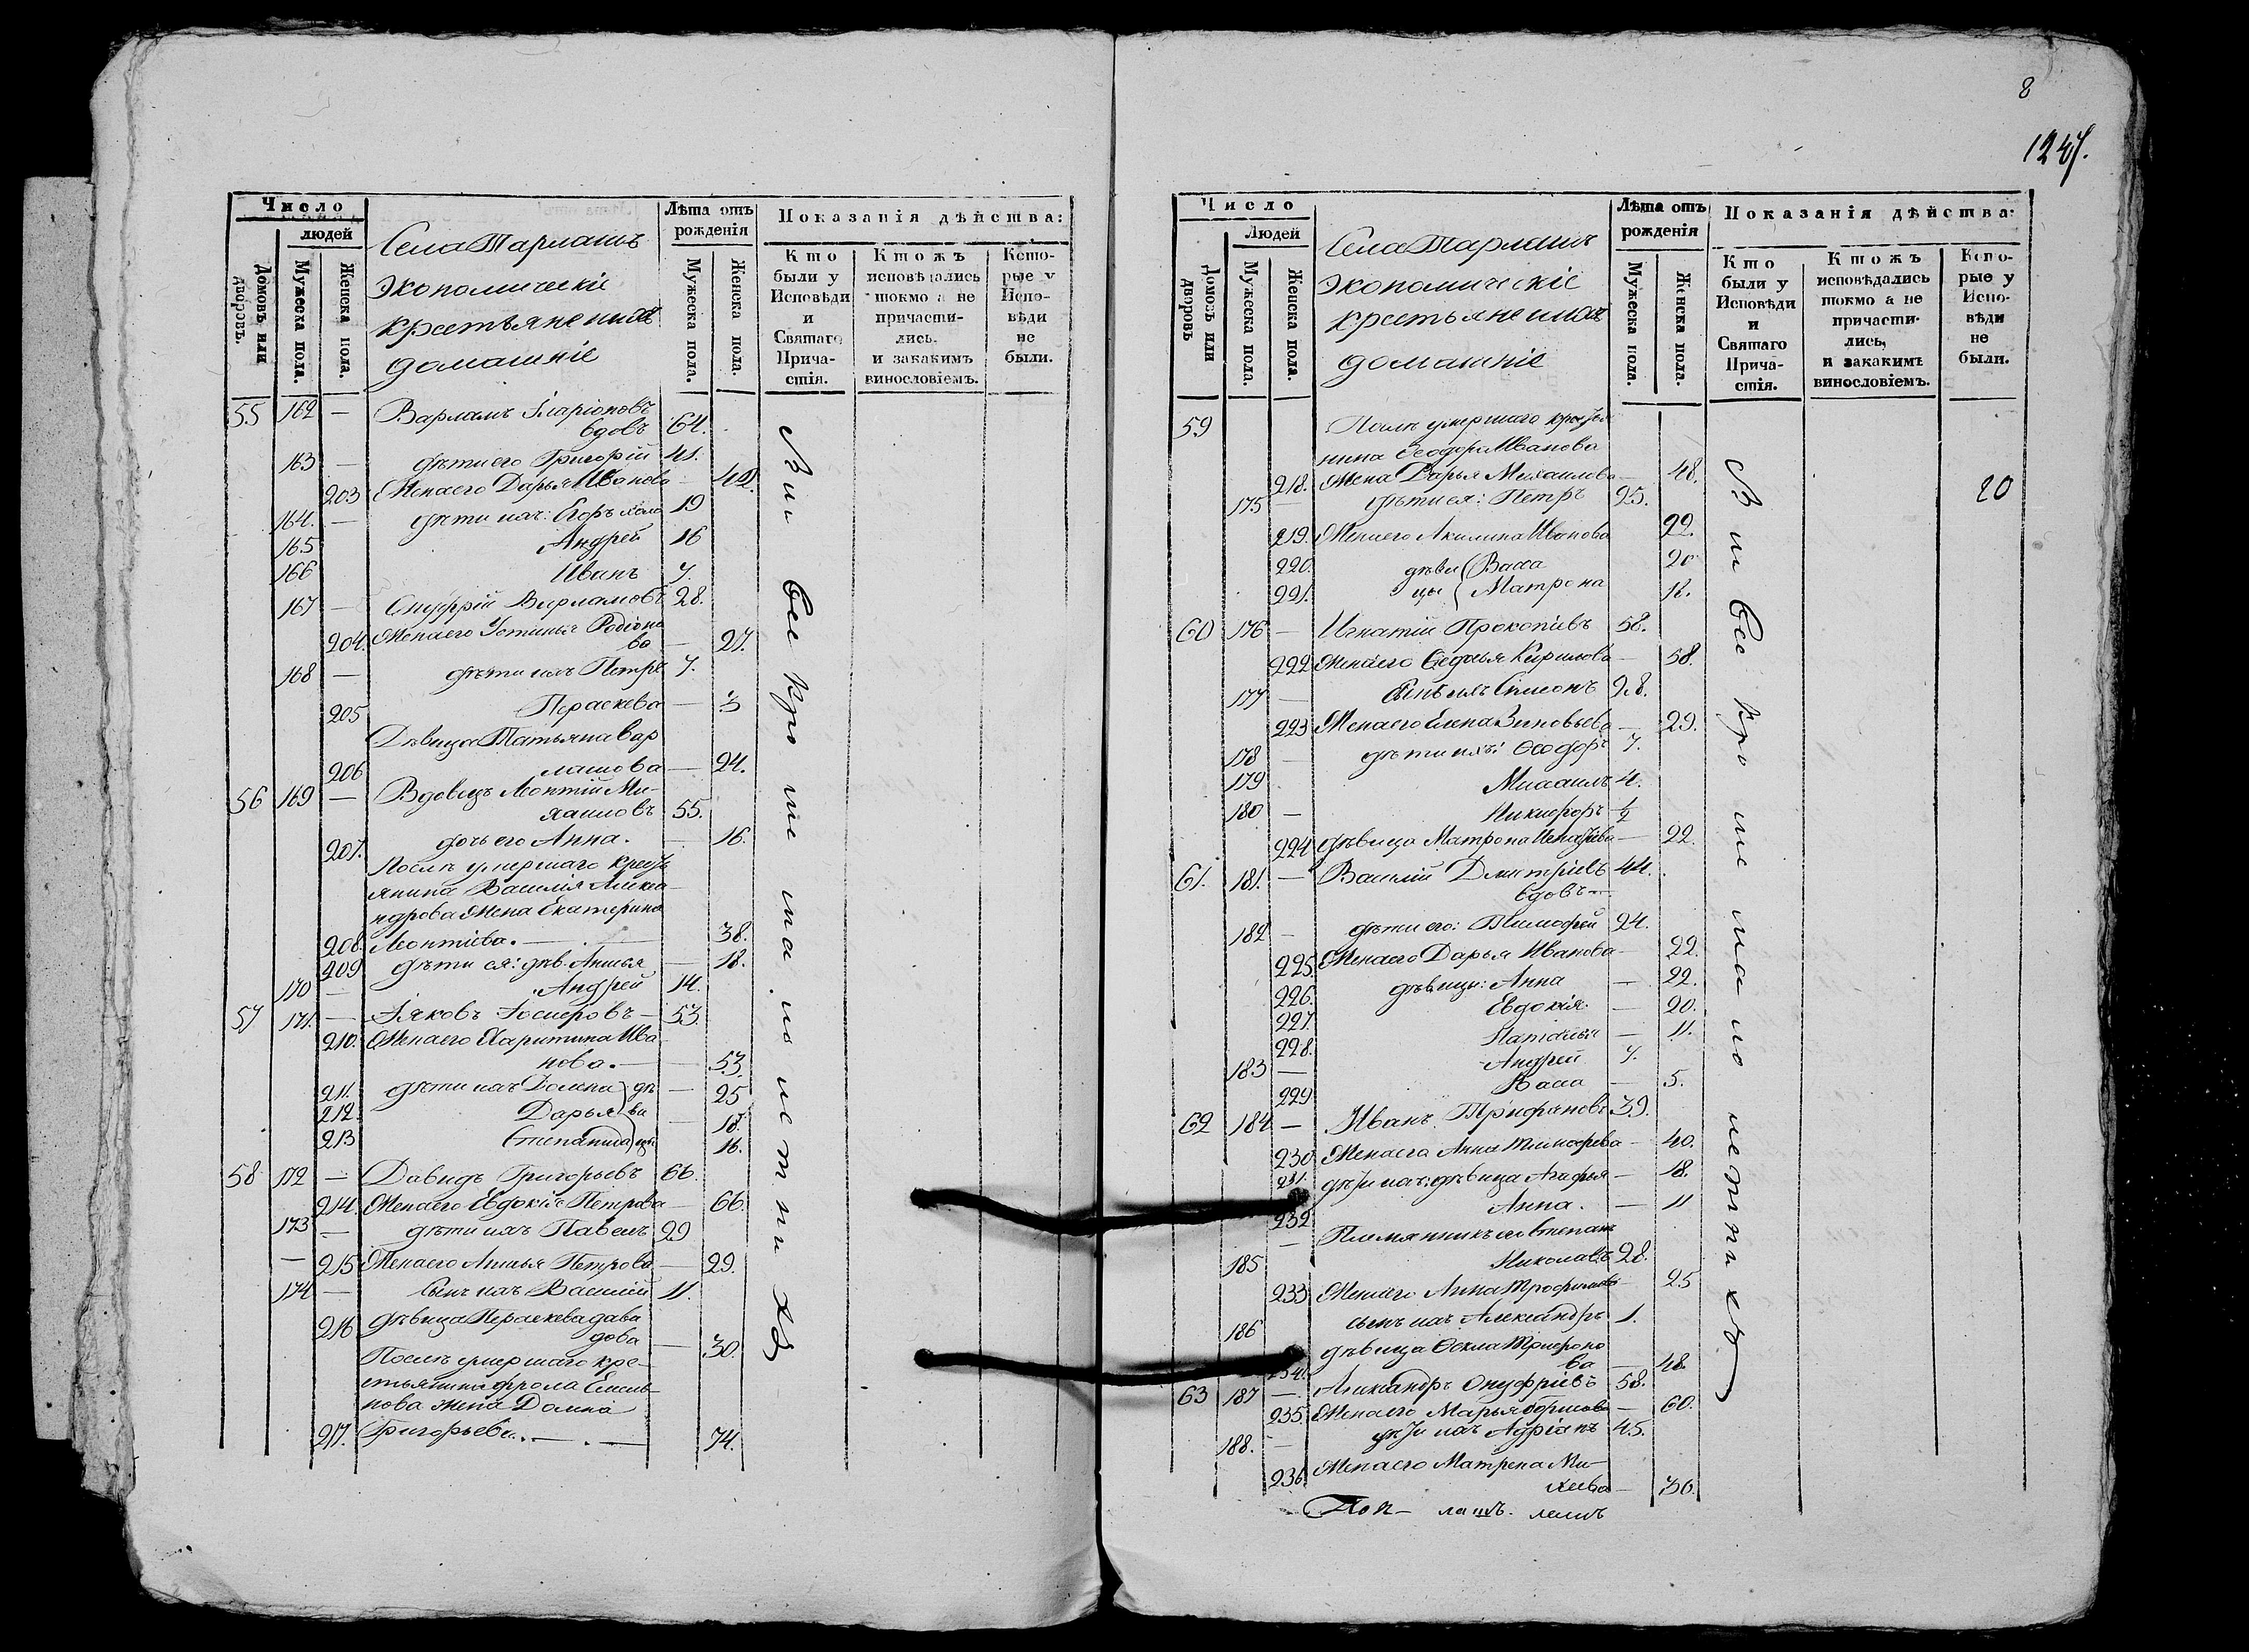 8
1247.
Число
людей
Домовъ или дворовъ.
Мужеска пола.
Женска пола.
Села Тарлашъ
экономическіе
крестьяне и ихъ
домашніе
Лѣта отъ рожденія
Мужеска пола.
Женска пола.
Показанія дѣйства:
Кто были у Исповѣди и Святаго Причастія.
Ктожъ исповѣдались токмо а не причастились, и закакимъ винословіемъ.
Которые у Исповѣди не были.
55 162 — Варламъ Иларіоновъ
вдовъ 64.
163 — дѣти его Григорій 41.
203 Жена его Дарья Иванова 42.
164. — дѣти ихъ: Егоръ 19
165 Андрей 16
166 Иванъ 7.
167 — Онуфрій Варламовъ 28.
204. Жена его Устинья Родіоно
ва — 27.
168 — дѣти ихъ Петръ 7.
205 Параскева — 3
Дѣвица Татьяна Вар
206 ламова — 24.
56 169 — Вдовецъ Леонтій Ми-
хаиловъ 55.
207. дочь его Анна. — 16.
Послѣ умершаго кресть
янина Василія Алекса-
ндрова Жена Екатерина
208. Леонтіева. — 38.
209 дѣти ея: дѣв. Анисья — 18.
170 — Андрей 14.
57 171. — Іяковъ Іосифовъ — 53.
210. Жена его Харитина Ива
нова. — 53.
211. дѣти ихъ Домна дѣ — 25
212. Дарья ви — 18.
213 Степанида цы 16.
58 172 — Давидъ Григорьевъ 66.
214. Жена его Евдокія Петрова — 66.
173 — дѣти ихъ Павелъ 29
— 215 Жена его Анисья Петрова — 29.
174 — сынъ ихъ Василій 11.
216 дѣвица Параскева Дави
дова — 30.
Послѣ умершаго кре-
стьянина Фрола Емель-
нова жена Домна
217. Григорьева. — 74.
Вси Сее кро ме ма ло лет ни хъ
Число
Людей
Домовъ или дворовъ
Мужеска пола.
Женска пола.
Села Тарлашъ
экономическіе
крестьяне и ихъ
домашніе
Лѣта отъ рожденія
Мужеска пола.
Женска пола.
Показанія дѣйства:
Кто были у Исповѣди и Святаго Причастія.
Ктожъ исповѣдались токмо а не причастились, и закакимъ винословіемъ.
Которые у Исповѣди не были.
59 Послѣ умершаго крестья
нина Ѳеодора Иванова
218. Жена Дарья Михаилова — 48.
175 — дѣти ея: Петръ 25.
20
219. Жена его Акилина Иванова 22.
220. дѣви Васса 20
221. цы Матрона 12.
60 176 — Игнатій Прокопіевъ 58.
222 Жена его Ѳедосья Кирилова — 58.
177 — Сынъ ихъ Симеонъ 28.
223 Жена его Елена Зиновьева — 29.
178 — дѣти ихъ: Ѳеодоръ 7.
179 Михаилъ 4.
180 — Никифоръ 1/2
224 дѣвица Матрона Игнатьева — 22.
61. 181. — Василій Дмитріевъ 44.
вдовъ —
182 — дѣти его: Тимофей 24.
225 Жена его Дарья Иванова — 22.
226. дѣвицы: Анна — 22.
227. Евдокія. — 20.
228. Наталья — 11.
183 — Андрей 7.
229 Васса — 5.
62 184 — Иванъ Трифановъ 39.
230 Жена его Анна Тимофеева — 40.
231. дѣти ихъ: дѣвица Агафья — 18.
232 Анна. — 11
— Племянникъ его Степанъ
185 Николаевъ 28.
233 Жена его Анна Трофимова — 25
186 сынъ ихъ Александръ 1.
дѣвица Ѳекла Трифоно
234. ва — 48.
63 187 — Александръ Онуфріевъ 58.
235. Жена его Марья Борисова — 60.
188. — дѣти ихъ Адріанъ 45.
236 Жена его Матрена Ми-
хеева — 36.
Вси Сее кро ме ма ло лет ни хъ